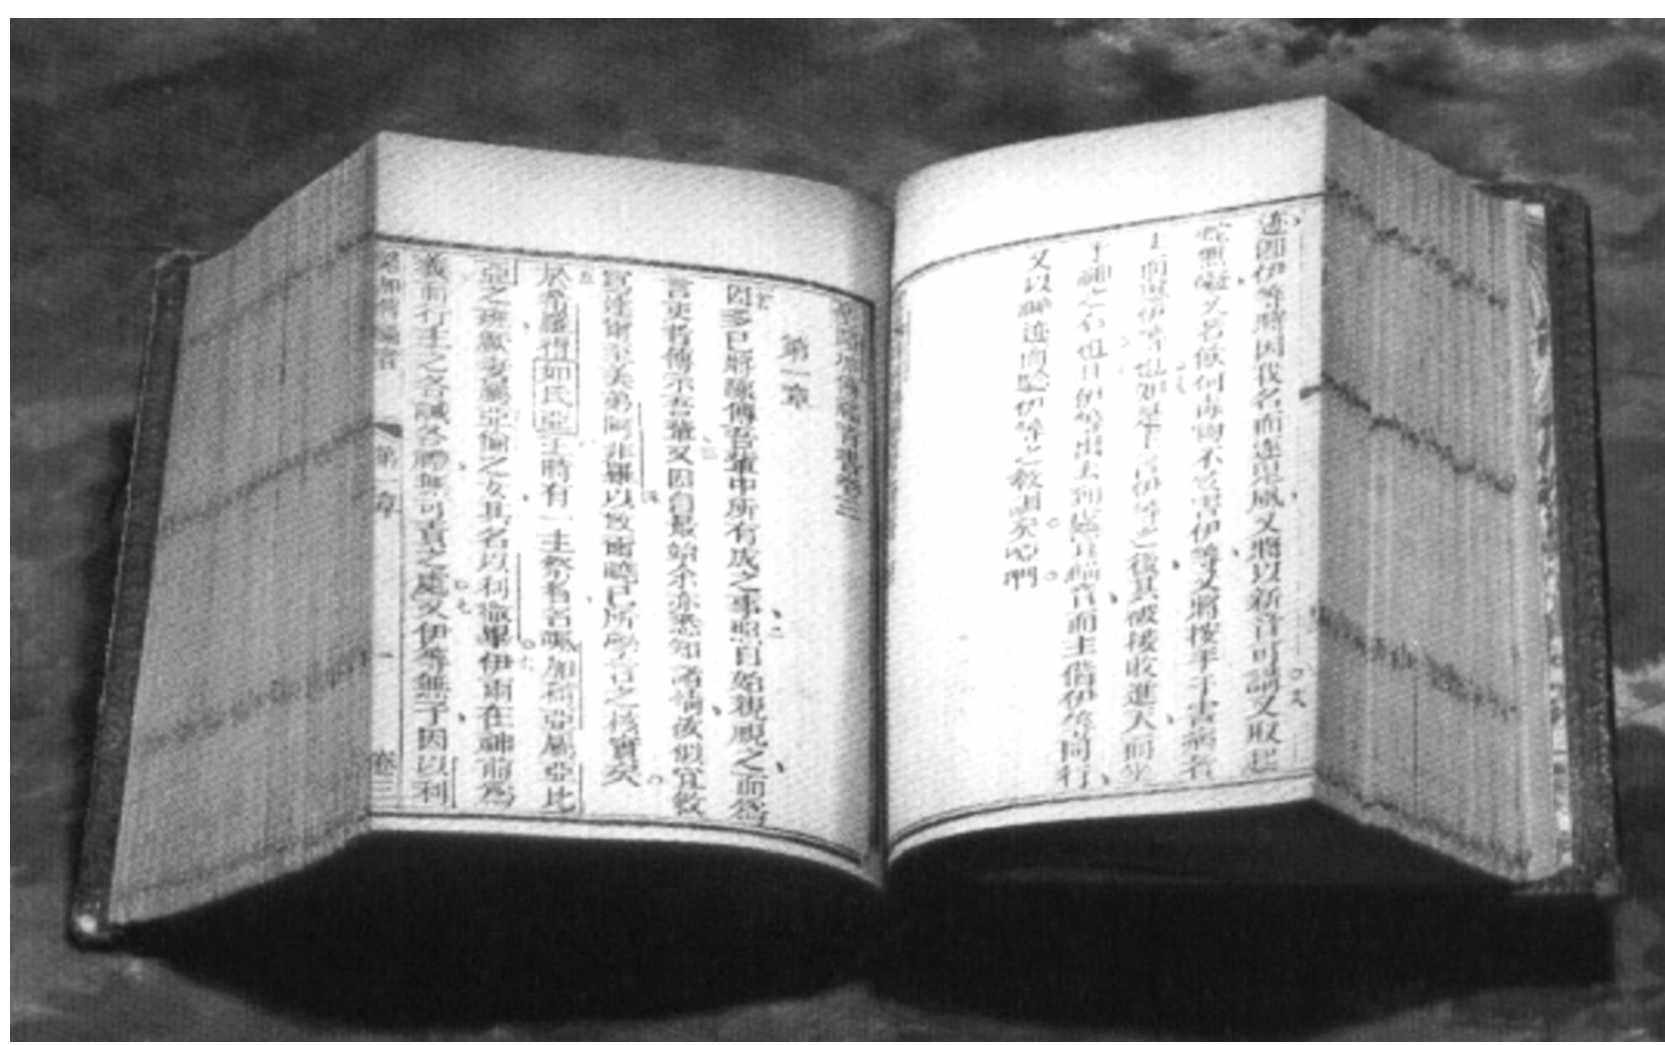 迹即伊等將因我名而逐鬼風又將以新音可講又取起
蛇無礙又若飲何毒物不受害伊等又將按手于害病者
上而伊等也如是主言伊等之後其被接收進天而坐
于神之右也且伊等出去到處宣福音而主偕伊等同行
又以神迹而驗伊等之教訓矣啞們
傳福音書卷三
第一章
因多已將臚傳吾輩中所有成之事照自始親覩之而為
言吏者傳示吾輩又因自最始余亦悉知諸情該似宜敘
寫達爾至美弟阿非羅以致爾曉已所學言之核實矣
於希羅得如氏亞王時有一主祭者名颯加利亞屬亞比
亞之班厥妻屬亞倫之女其名以利撒畢伊兩在神前為
義而行主之各誡各禮無可責之處又伊等無子因以利
路加傳福音 第一章 卷三